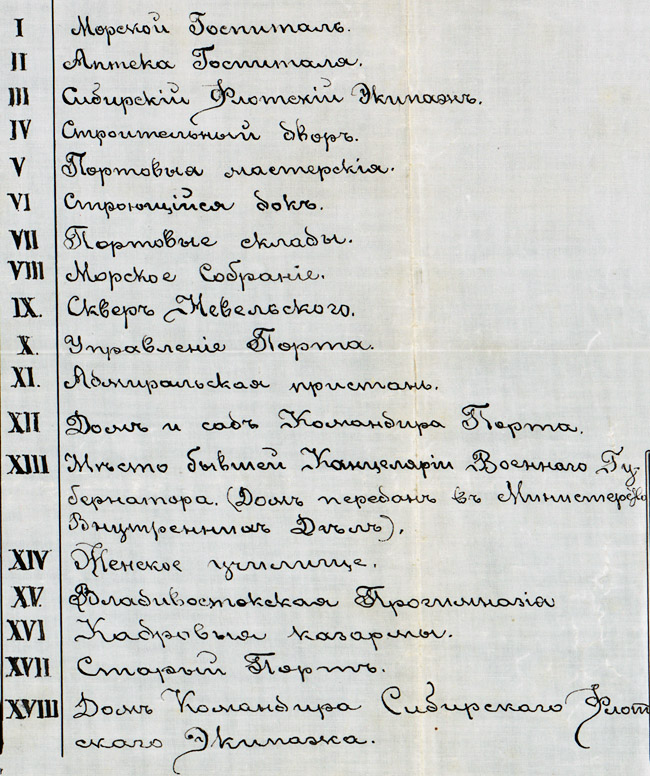 I Морской Госпиталь.
II Аптека Госпиталя.
III Сибирскій Флотскій Экипажъ.
IV Строительный дворъ.
V Портовыя мастерскія.
VI Строющійся докъ.
VII Портовые склады.
VIII Морское Собраніе.
IX. Скверъ Невельского.
X. Управленіе Порта.
XI. Адмиральская пристань.
XII Домъ и садъ Командира Порта.
XIII Мѣсто бывшей Канцеляріи Военнаго Гу-
бернатора. (Домъ переданъ въ Министерство
Внутреннихъ Дѣлъ).
XIV Женское училище.
XV. Владивостокская Прогимназія
XVI Кадровыя казармы.
XVII Старый Портъ.
XVIII Домъ Командира Сибирскаго Флот
скаго Экипажа.